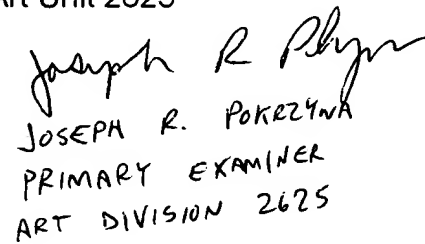 Art Unit
Joseph R
JOSEPH R. POKRZYNA
PRIMARY EXAMINER
ART DIVISION 2625